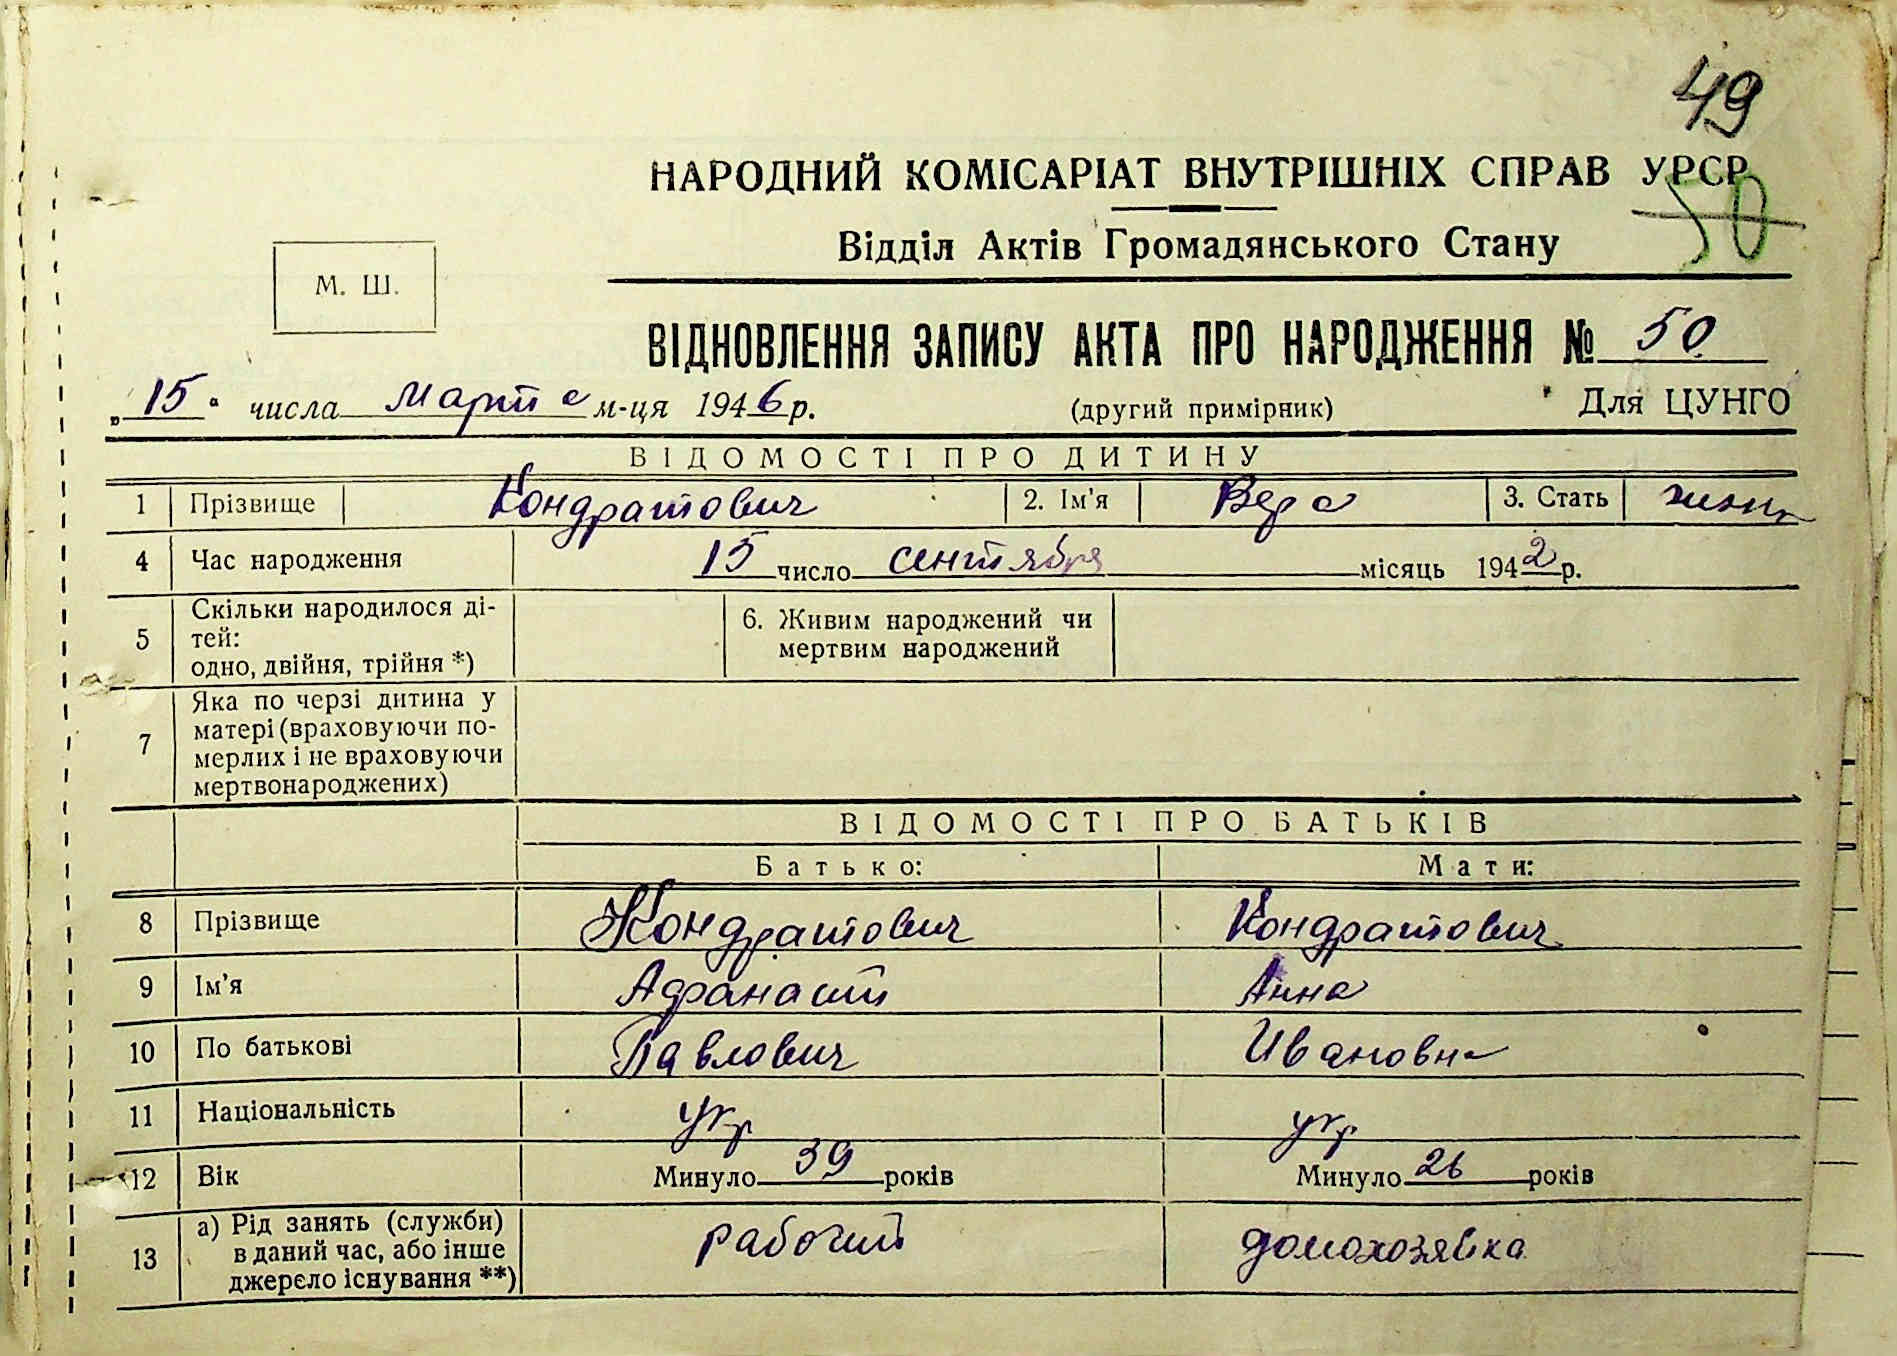 49
НАРОДНИЙ КОМІСАРІАТ ВНУТРІШНІХ СПРАВ УРСР
50
Відділ Актів Громадянського Стану
М. Ш.
ВІДНОВЛЕННЯ ЗАПИСУ АКТА ПРО НАРОДЖЕННЯ № 50
„15" числа Марта м-ця 1946 р. (другий примірник) Для ЦУНГО
ВІДОМОСТІ ПРО ДИТИНУ
1 Прізвище Кондратович 2. Ім'я Вера 3. Стать женк
4 Час народження 15 число сентября місяць 1942 р.
5 Скільки народилося ді-
тей:
одно, двійня, трійня *)
6. Живим народжений чи
мертвим народжений
7 Яка по черзі дитина у
матері (враховуючи по-
мерлих і не враховуючи
мертвонароджених)
ВІДОМОСТІ ПРО БАТЬКІВ
Батько: Мати:
8 Прізвище Кондратович Кондратович
9 Ім'я Афанасий Анна
10 По батькові Павлович Ивановна
11 Національність укр укр
12 Вік Минуло 39 років Минуло 26 років
13 а) Рід занять (служби)
в даний час, або інше
джерело існування **)
рабочий домохозявка